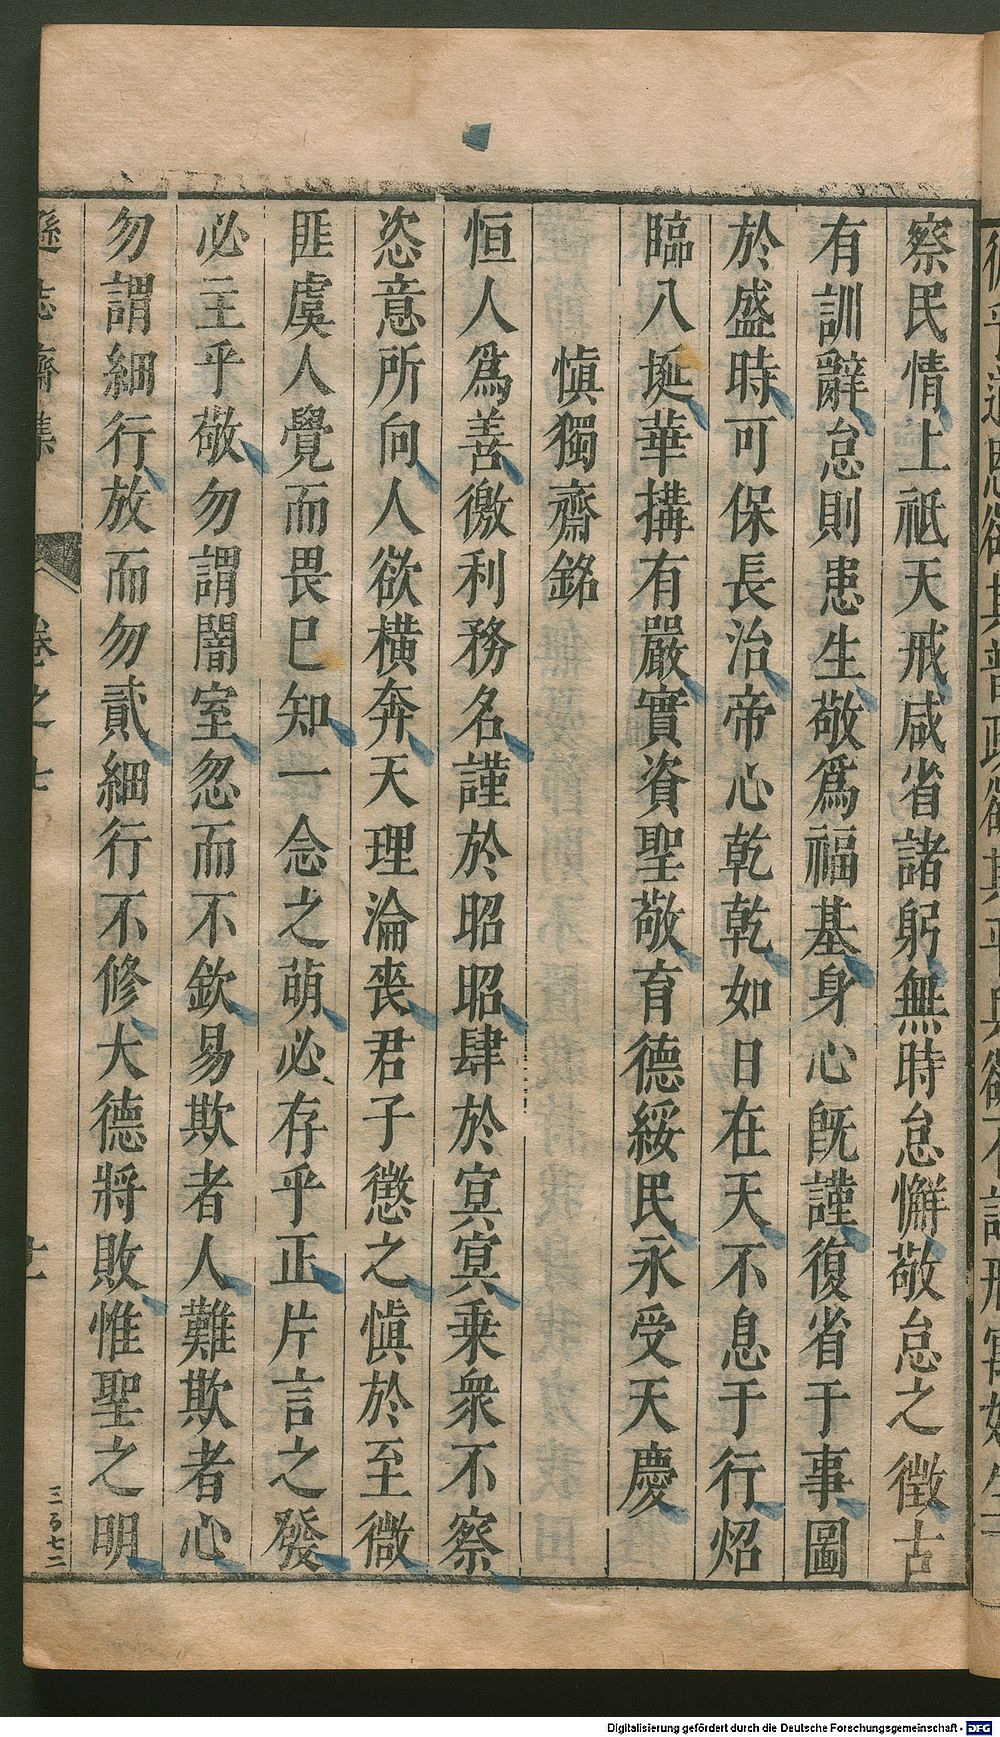 察民情上祗天戒咸省諸躬無時怠懈敬怠之徵古
有訓辭怠則患生敬爲福基身心既謹復省于事圖
於盛時可保長治帝心乾乾如日在天不息于行炤
臨八埏華搆有嚴實資聖敬育德綏民永受天慶
愼獨齋銘
恒人爲善徼利務名謹於昭昭肆於冥冥乗衆不察
恣意所向人欲横奔天理淪喪君子懲之愼於至微
匪虞人覺而畏巳知一念之萌必存乎正片言之發
必主乎敬勿謂闇室忽而不欽易欺者人難欺者心
勿謂細行放而勿貳細行不修大德將敗惟聖之明
遜志齋集
卷之七
三百七二
Digitalisierung gefördert durch die Deutsche Forschungsgemeinschaft - DFG